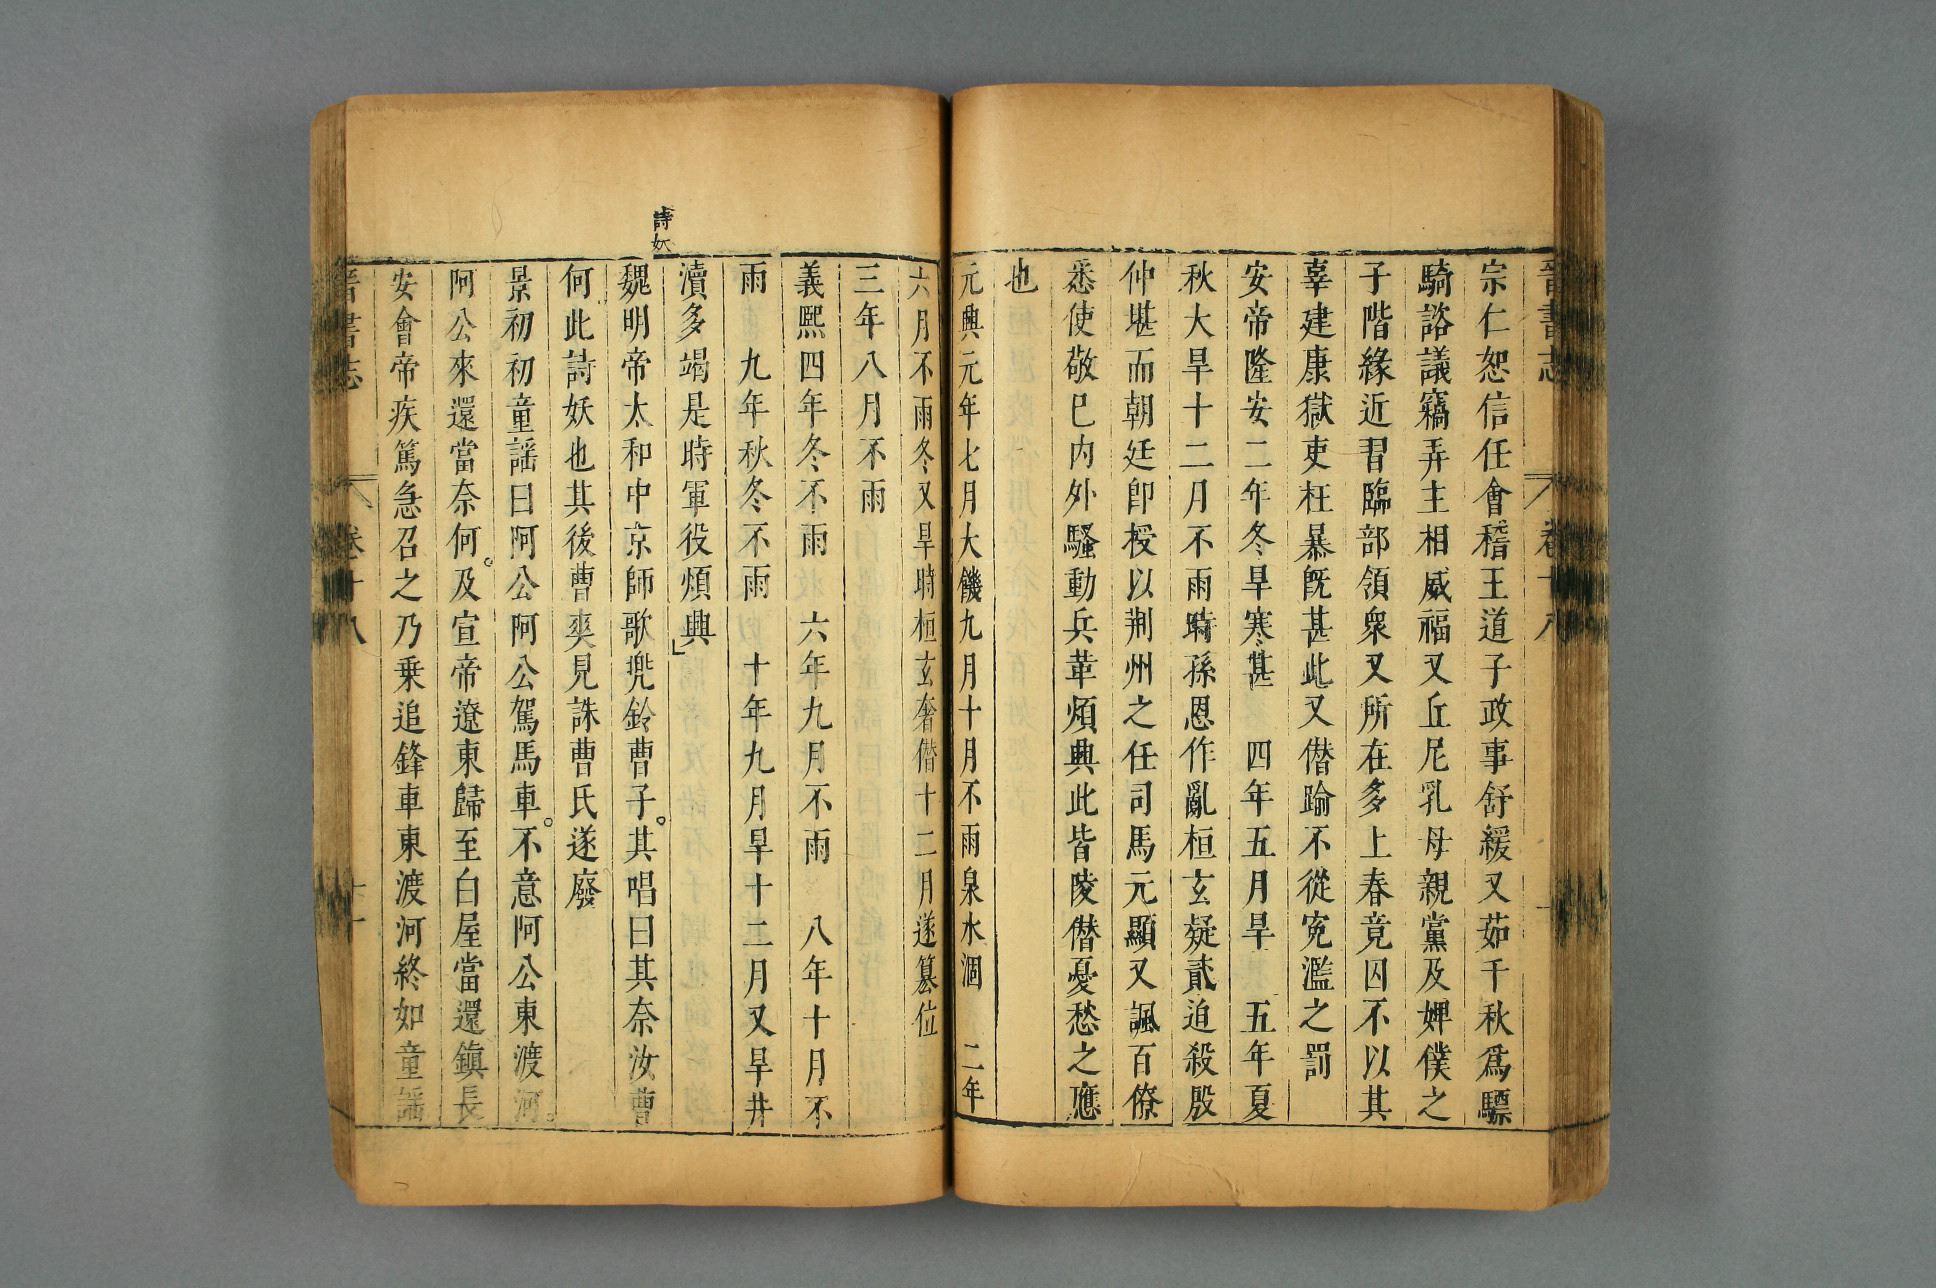 晉書志 卷十八
宗仁恕信任會稽王道子政事舒緩又茹千秋爲驃
騎諮議竊弄主相威福又丘尼乳母親黨及婢僕之
子階緣近習臨部領衆又所在多上春竟囚不以其
辜建康獄吏枉暴旣甚此又僭踰不從寃濫之罰
安帝隆安二年冬旱寒甚 四年五月旱 五年夏
秋大旱十二月不雨時孫恩作亂桓玄疑貳迫殺殷
仲堪而朝廷卽授以荆州之任司馬元顯又諷百僚
悉使敬已內外騷動兵革煩興此皆陵僭憂愁之應
也
元興元年七月大饑九月十月不雨泉水涸 二年
六月不雨冬又旱時桓玄奢僭十二月遂簒位
三年八月不雨
義熙四年冬不雨 六年九月不雨 八年十月不
雨 九年秋冬不雨 十年九月旱十二月又旱井
瀆多竭是時軍役煩興
詩妖
魏明帝太和中京師歌兠鈴曹子其唱曰其奈汝曹
何此詩妖也其後曹爽見誅曹氏遂廢
景初初童謡曰阿公阿公駕馬車不意阿公東渡河
阿公來還當奈何及宣帝遼東歸至白屋當還鎮長
安會帝疾篤急召之乃乗追鋒車東渡河終如童謡
晉書志 卷十八 十一